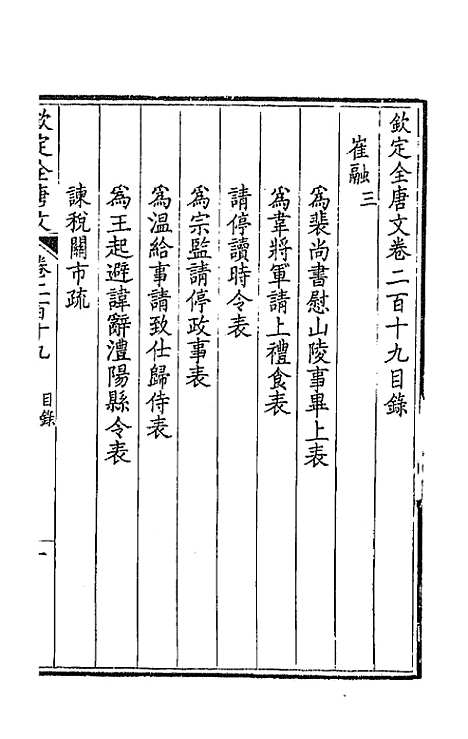 欽定全唐文卷二百十九目錄
崔融三
爲裴尚書慰山陵事畢上表
爲韋將軍請上禮食表
請停讀時令表
爲宗監請停政事表
爲溫給事請致仕歸侍表
爲王起避諱辭澧陽縣令表
諫稅關市疏
欽定全唐文 卷二百十九 目錄 一